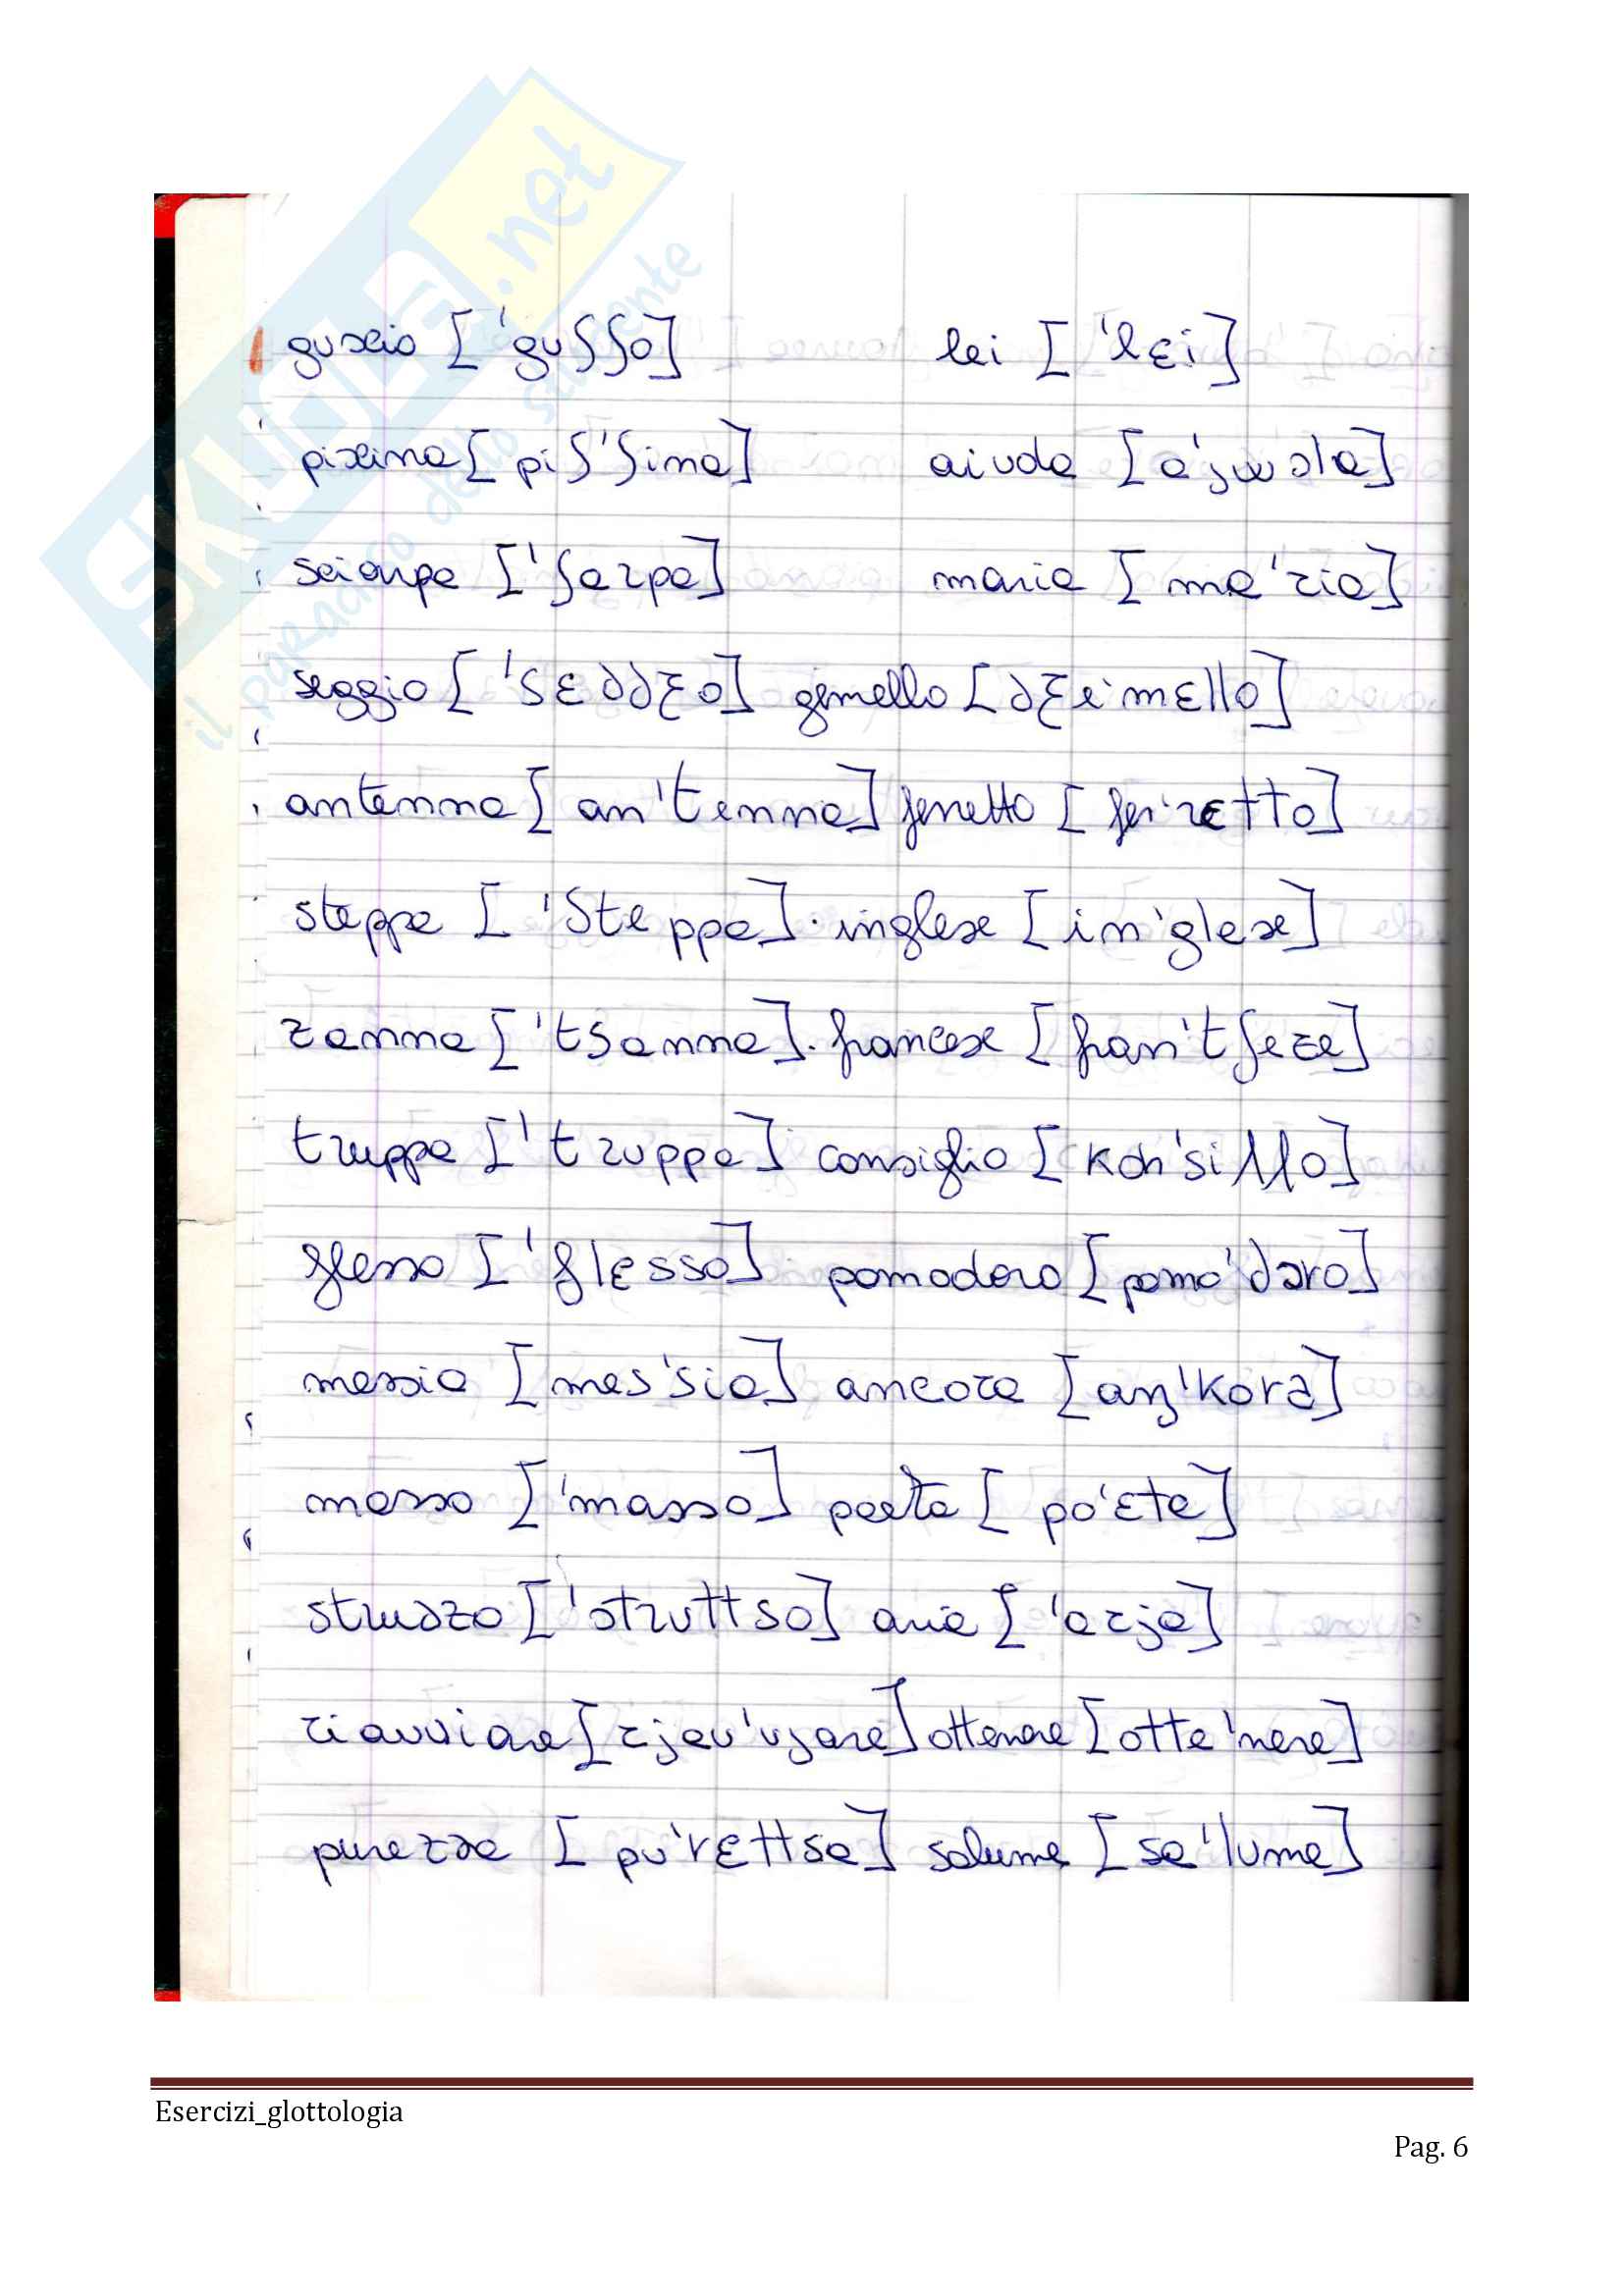 SKUOLA.net
il paradiso dello studente
guscio ['guʃʃo] lei ['lɛi]
piscina [piʃ'ʃina] aiuola [a'jwɔla]
sciarpa ['ʃarpa] maria [ma'ria]
seggio ['sɛddʒo] gemello [dʒe'mɛllo]
antenna [an'tenna] ferretto [fer'rɛtto]
steppa ['steppa] inglese [in'glese]
zanna ['tsanna] francese [fran'tʃeze]
truppa ['truppa] consiglio [kon'siʎʎo]
flesso ['flɛsso] pomodoro [pomo'dɔro]
messia [mes'sia] ancora [aŋ'kora]
masso ['masso] poeta [po'ɛta]
struzzo ['struttso] aria ['arja]
riavviare [rjav'vjare] ottenere [otte'nere]
purezza [pu'rɛttsa] salume [sa'lume]
Esercizi_glottologia
Pag. 6